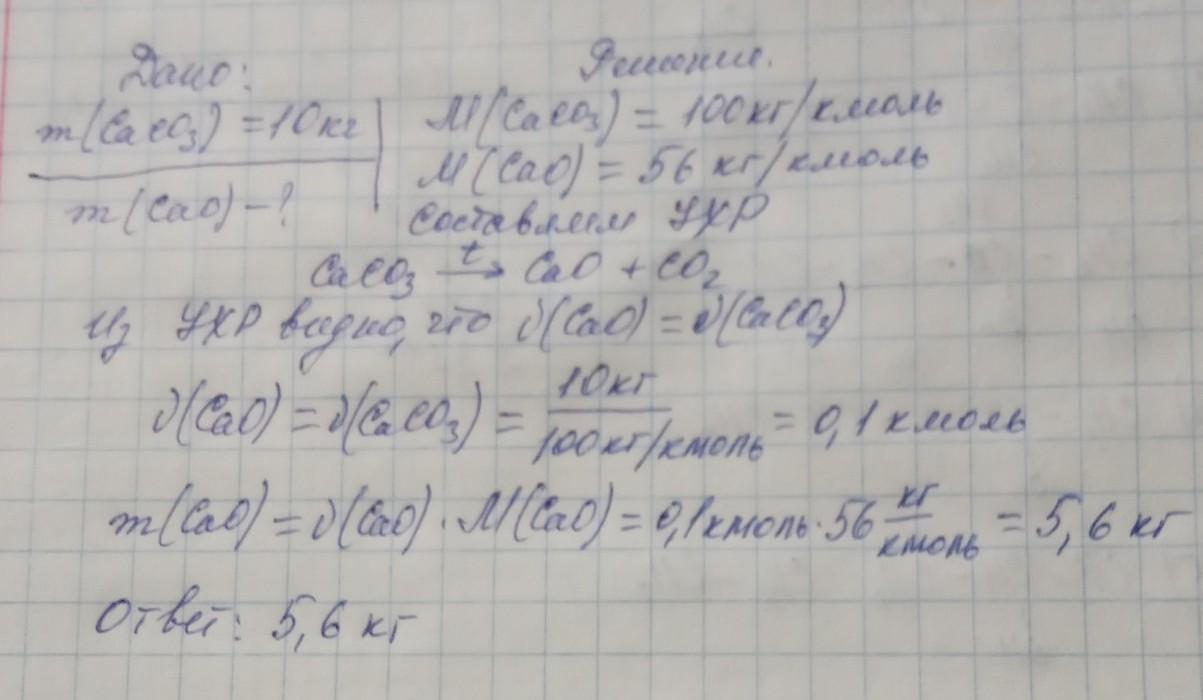 Дано: Решение.
m(CaCO₃) = 10кг M(CaCO₃) = 100кг/кмоль
m(CaO) - ? M(CaO) = 56 кг/кмоль
Составляем УХР
CaCO₃ t→ CaO + CO₂
Из УХР видно, что ν(CaO) = ν(CaCO₃)
ν(CaO) = ν(CaCO₃) = 10кг / 100кг/кмоль = 0,1 кмоль
m(CaO) = ν(CaO) · M(CaO) = 0,1 кмоль · 56 кг/кмоль = 5,6 кг
Ответ: 5,6 кг